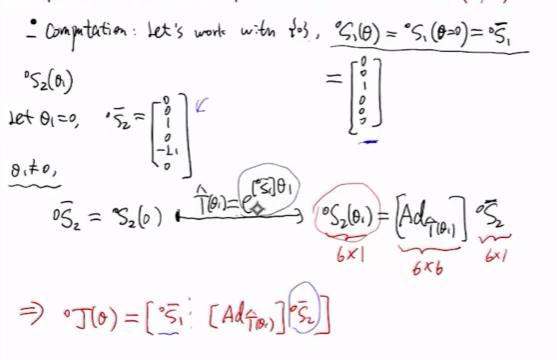 - Computation: Let's work with {0}, ⁰S₁(θ) = ⁰S₁(θ=0) = ⁰S̄₁
⁰S₂(θ₁) = [0 0 1 0 0 0]
Let θ₁=0, ⁰S̄₂ = [0 0 1 0 -L₁ 0]
θ₁≠0,
⁰S̄₂ = ⁰S₂(0) T̂(θ₁)=e^{[⁰S̄₁]θ₁} ⁰S₂(θ₁) = [Ad_{T̂(θ₁)}] ⁰S̄₂
6×1 6×6 6×1
⇒ ⁰J(θ) = [⁰S̄₁ ⋮ [Ad_{T̂(θ₁)}] ⁰S̄₂]